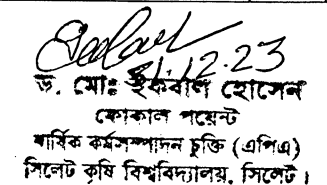 31.12.23
ড. মোঃ ইকবাল হোসেন
ফোকাল পয়েন্ট
বার্ষিক কর্মসম্পাদন চুক্তি (এপিএ)
সিলেট কৃষি বিশ্ববিদ্যালয়, সিলেট।